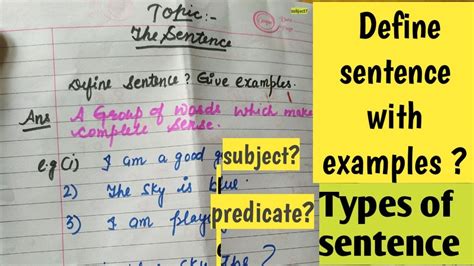 Topic:-
The Sentence
subject?
Define Sentence? Give examples.
Ans A Group of words which make
complete sense.
e.g (i) I am a good g
2) The Sky is blue
3) I am play
subject?
predicate?
Define
sentence
with
examples ?
Types of
sentence